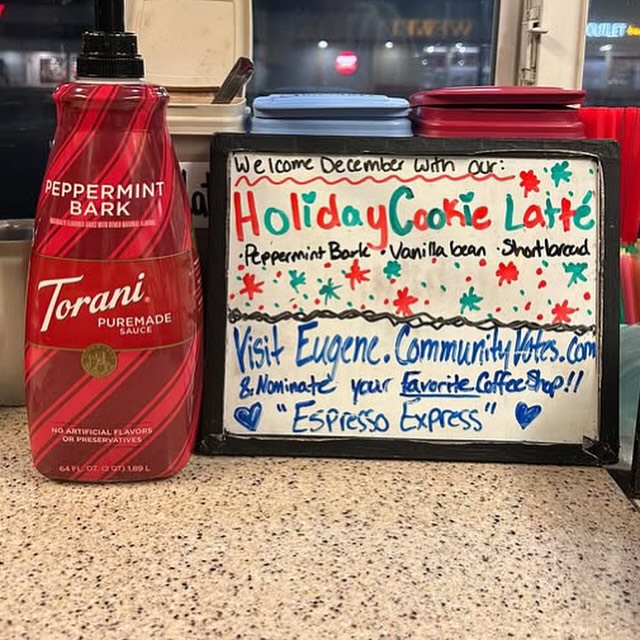 PEPPERMINT
BARK
Torani
PUREMADE
SAUCE
NO ARTIFICIAL FLAVORS
OR PRESERVATIVES
64 FL. OZ. (2 QT) 1.89 L
Welcome December with our:
Holiday Cookie Latté
·Peppermint Bark ·Vanilla bean ·Shortbread
Visit Eugene.CommunityVotes.com
& Nominate your Favorite Coffee Shop!!
"Espresso Express"
OUTLET